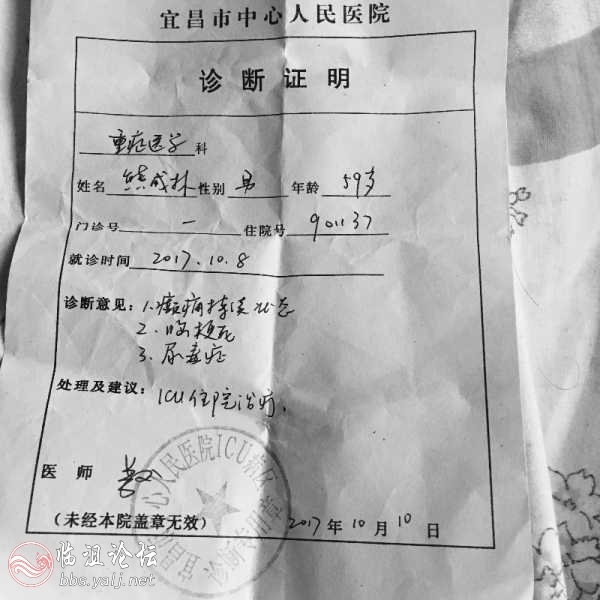 宜昌市中心人民医院
诊断证明
重症医学科
姓名 熊成林 性别 男 年龄 59岁
门诊号 — 住院号 901137
就诊时间 2017.10.8
诊断意见：1.癫痫持续状态
2.脑梗死
3.尿毒症
处理及建议：ICU住院治疗.
医师
（未经本院盖章无效） 2017年10月10日
临沮论坛
bbs.yalj.net